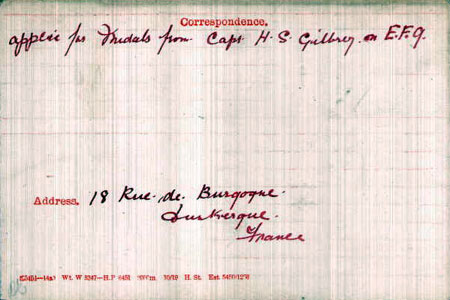 Correspondence.
applic for Medals from Capt H. S. Gilbrey on E.F.9.
Address. 18 Rue de Burgogne.
Dunkerque.
France
Wt. W 5247—H.P 6451 10/19 H. St. Est.